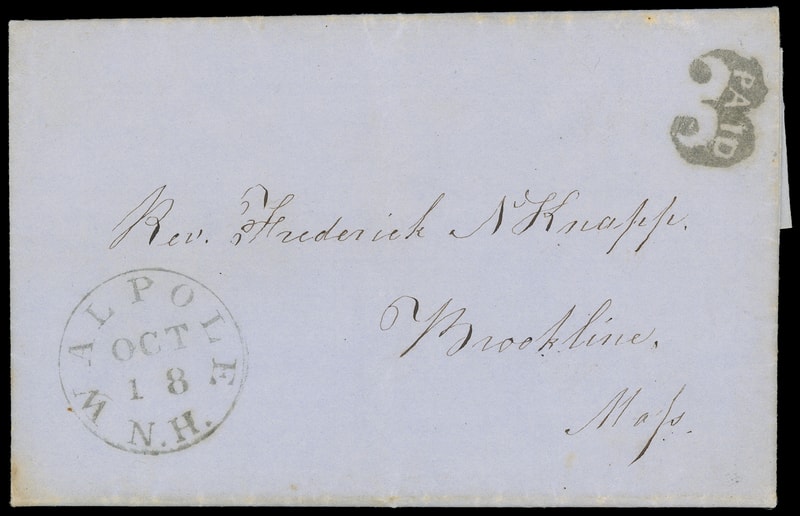 3
PAID
Rev. Frederick N Knapp.
Brookline.
Mass.
WALPOLE
OCT
18
N.H.